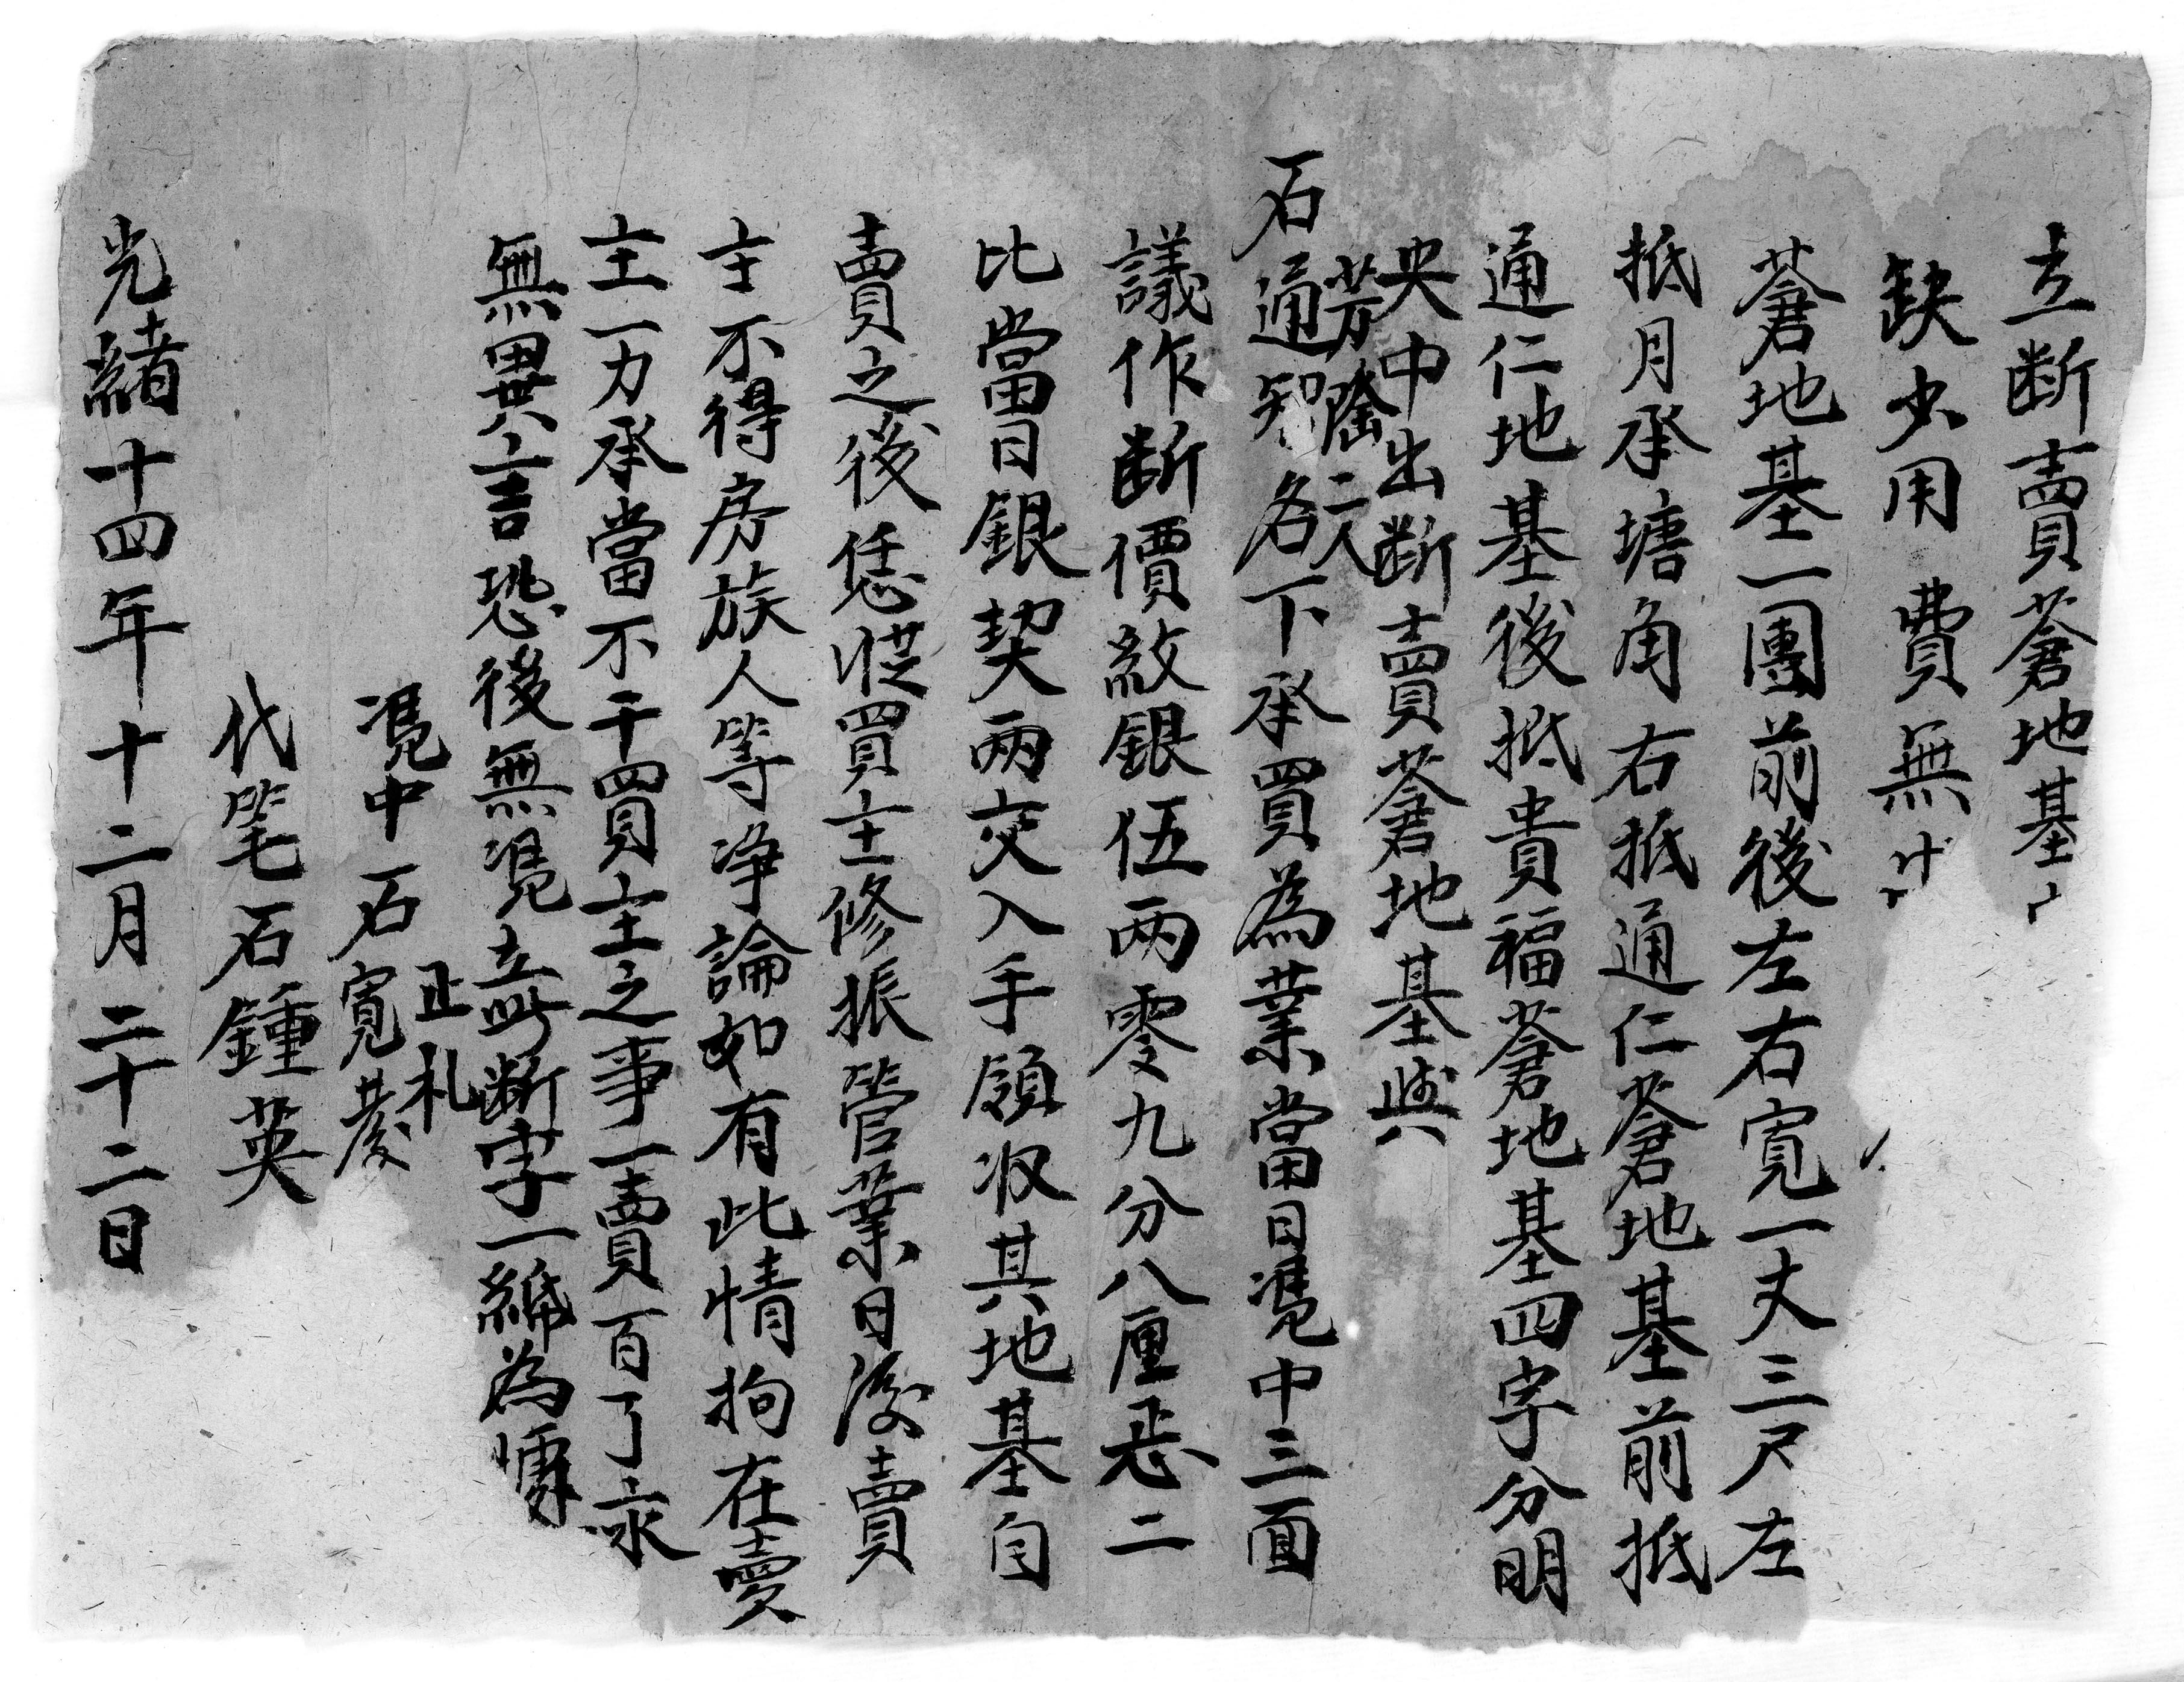 立断賣蒼地基
缺少用費無
蒼地基一團前後左右寬一丈三尺左
抵月承塘角右抵通仁蒼地基前抵
通仁地基後抵貴福蒼地基四字分明
央中出断賣蒼地基與
芳隆二人
石通智名下承買為業當日凴中三面
議作断價紋銀伍兩零九分八厘忢二
比當日銀契兩交入手領収其地基自
賣之後恁從買主修振管業日後賣
主不得房族人等净論如有此情拘在賣
主一力承當不干買主之事一賣百了永
無異言恐後無凴立此断字一紙為㨿
正札
凴中石寬慶
代笔石鍾英
光緒十四年十二月二十二日